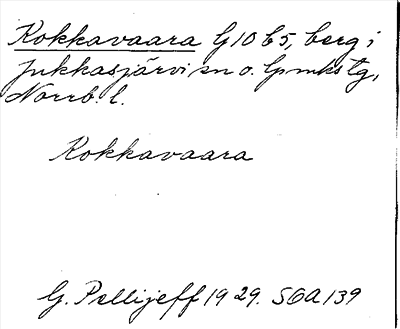 Kokkavaara G10 b5, berg i
Jukkasjärvi sn o. Lpmks tg,
Norrb. l.
Kokkavaara
G. Pellijeff 1929. SOA 139